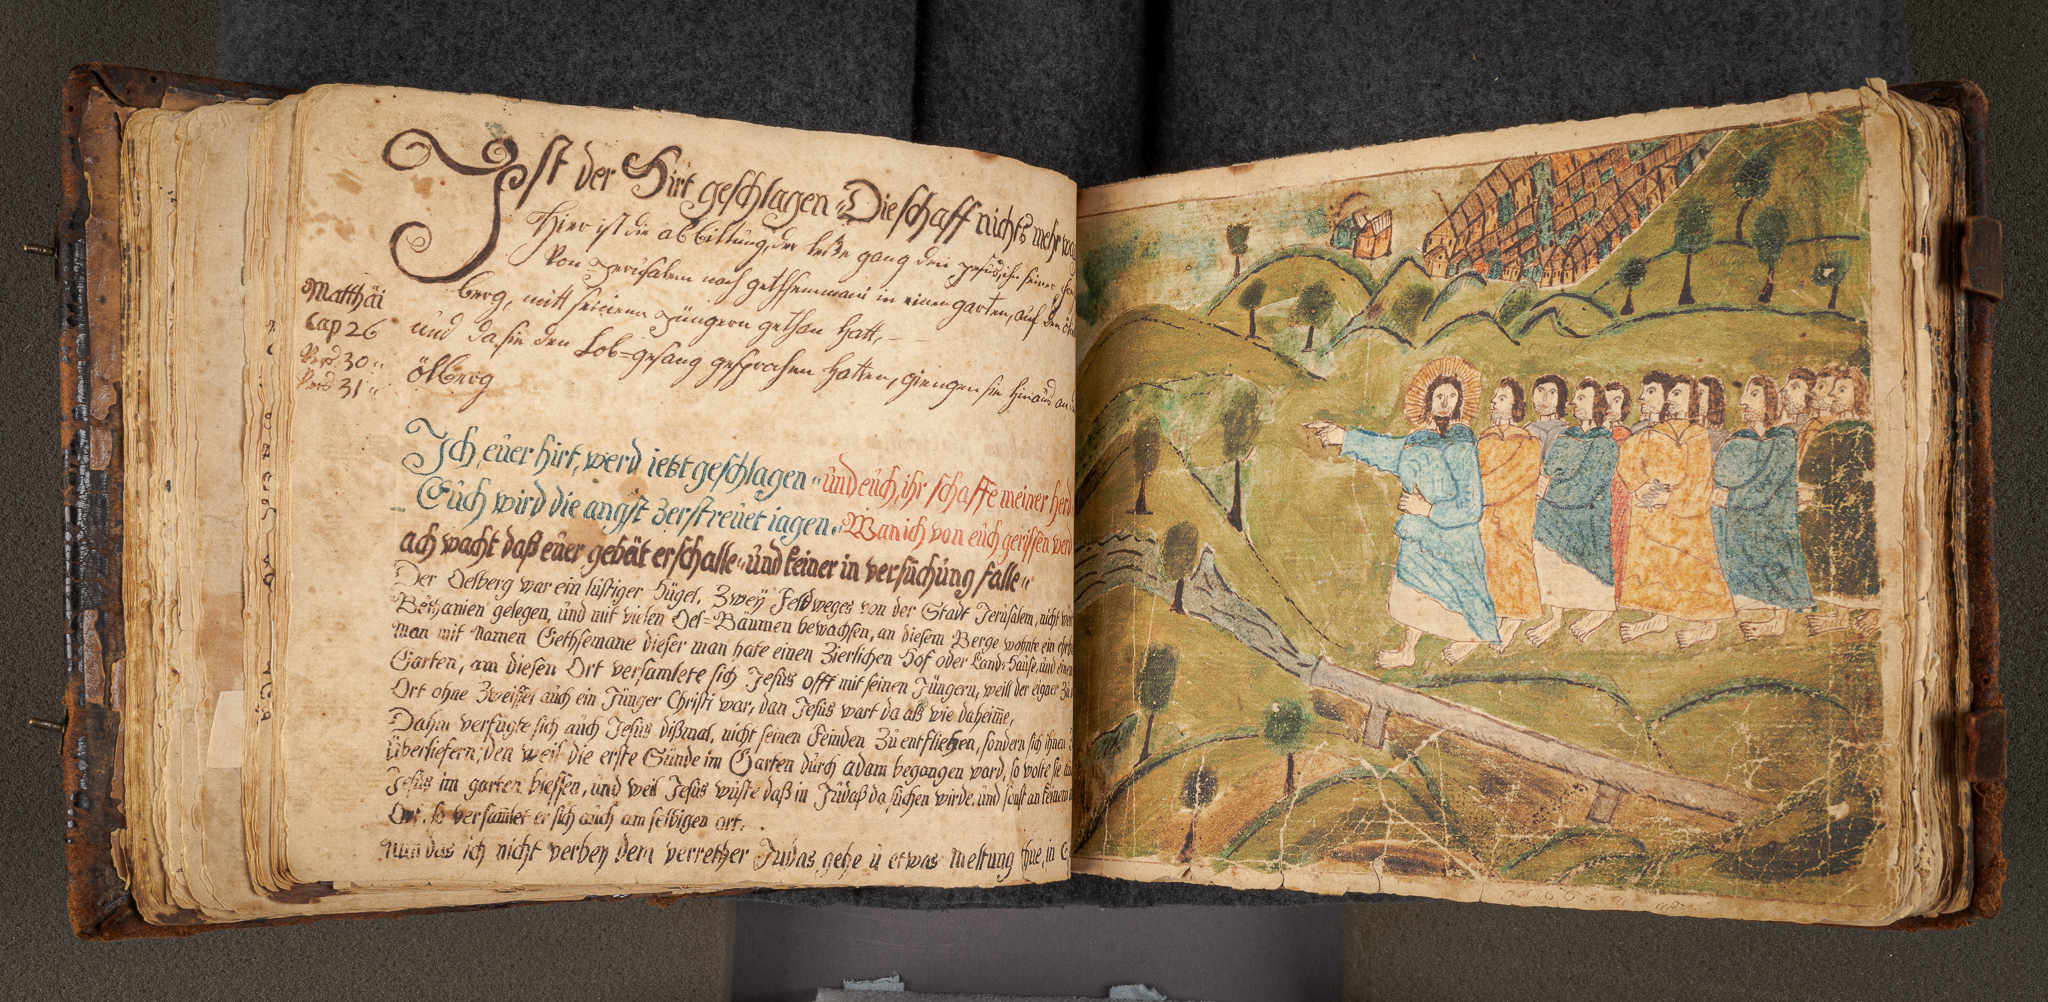 Ist der Hirt geschlagen „ Die schaff nichts mehr
Hier ist die abbildung, der letzte gang den Jesus in seiner
Von Jerusalem nach gethsemmani in einen garten, auf den
berg, mitt seinenn Jüngern gethan hatt, –
Matthäi
Cap 26
Verß 30 „
Verß 31 „
und da sie den Lob=gesang gesprochen hatten, giengen sie hinaus an
ölberg
Ich, eüer hirt, werd ietzt geschlagen „ ünd eüch, ihr schaffe meiner herd
Eüch wird die angst zerstreüet iagen „ Wan ich von eüch gerissen werd
ach wacht daß eüer gebät erschalle „ ünd keiner in versüchüng falle „
Der Oelberg war ein lüstiger Hügel, Zweÿ Feldweges von der Stadt Jerüsalem, nicht
Bethanien gelegen, ünd mit vielen Oel=Bäümen bewachsen, an diesem Berge wohnte ein
man mit Namen Gethsemane dieser man hate einen Zierlichen Hof oder Land=Haüse, ünd einen
Garten, an diesen Ort versamlete sich Jesüs offt mit seinen Jüngern, weill der eigner
Ort ohne Zweiffel aüch ein Jünger Christi war, dan Jesüs wart da als wie daheime,
Dahin verfügte sich aüch Jesüs dißmal, nicht seinen Feinden Zü entfliehen, sondern sich ihnen
Überliefern, den weil die erste Sünde im Garten dürch adam begangen ward, so wolte sie
Jesüs im garten biessen, ünd weil Jesüs wüste daß in Jüdaß da süchen wirde, ünd sonst an keinem
Ort, so versamlet er sich aüch am selbigen ort.
Nün das ich nicht verbeÿ dem verrether Judas gehe ü etwas meltung thue, in